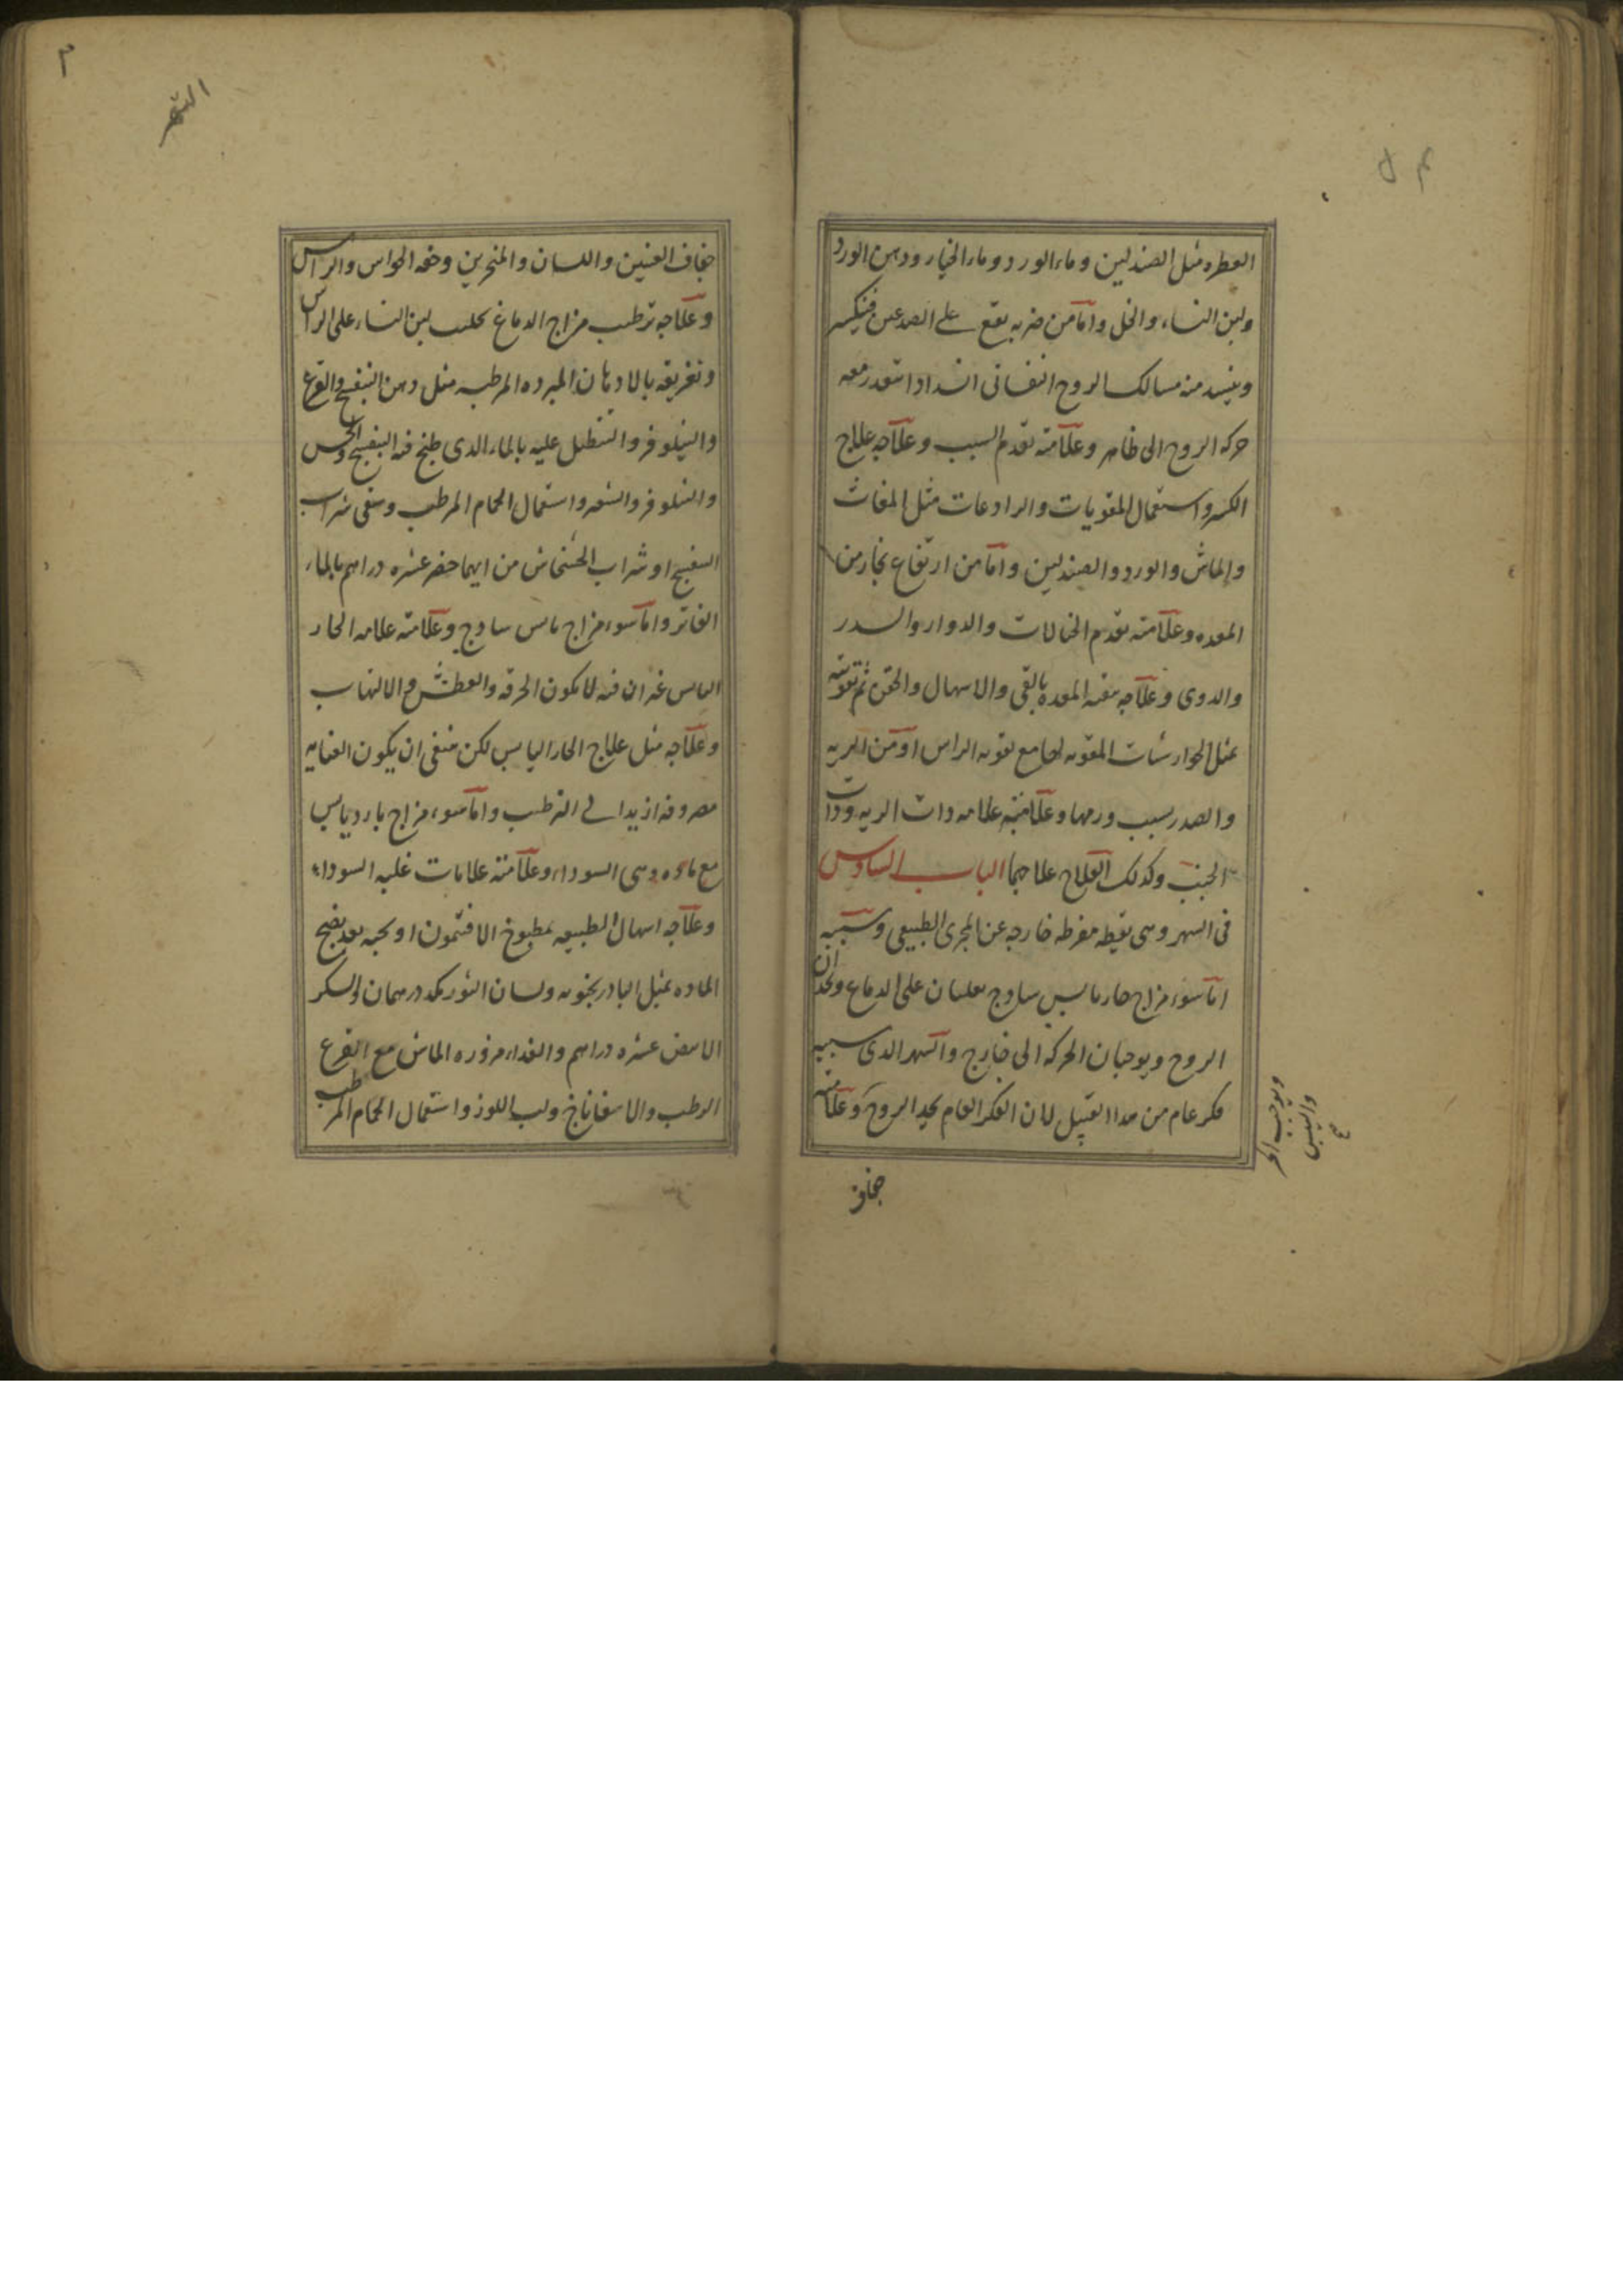 العطره مثل الصندلين وماء الورد وماء الخيار ودهن الورد
ولبن النساء والخل واما من ضربه تقع على الصدغين فينكسر
وينسد منه مسالك الروح النفسانى انسدادا يتعذر معه
حركه الروح الى ظاهر وعلامته تقدم السبب وعلاجه علاج
الكسر واستعمال المقويات والرادعات مثل المغاث
والماش والورد والصندلين واما من ارتفاع بخار من
المعده وعلامته تقدم الخيالات والدوار والسدر
والدوى وعلاجه تنقيه المعده بالقى والاسهال والحقن ثم تقويته
بمثل الجوارشات المقويه لها مع تقويه الراس او من الريه
والصدر بسبب ورمها وعلامته علامه ذات الريه وذات
الجنب وكذلك العلاج علاجهما الباب السادس
فى السهر وهى يقظه مفرطه خارجه عن المجرى الطبيعى وسببه
اما سوء مزاج حار يابس ساذج يغلبان على الدماغ ويحدان
الروح ويوجبان الحركه الى خارج والسهر الذى سببه
فكر عام من هذا القبيل لان الفكر العام يحد الروح وعلامته
ويوجب الحر
واليبس
جفاف
٣
السهر
جفاف العينين واللسان والمنخرين وخفه الحواس والراس
وعلاجه ترطيب مزاج الدماغ بحلب لبن النساء على الراس
وتغريقه بالادهان المبرده المرطبه مثل دهن البنفسج والقرع
والنيلوفر والتنطيل عليه بالماء الذى طبخ فيه البنفسج والخس
والنيلوفر والشعير واستعمال الحمام المرطب وسقى شراب
البنفسج او شراب الخشخاش من ايهما حضر عشره دراهم بالماء
الفاتر واما سوء مزاج يابس ساذج وعلامته علامه الحار
اليابس غير ان فيه لا يكون الحرقه والعطش والالتهاب
وعلاجه مثل علاج الحار اليابس لكن ينبغى ان يكون العنايه
مصروفه ازيد الى الترطيب واما سوء مزاج بارد يابس
مع ماده وهى السوداء وعلامته علامات غلبه السوداء
وعلاجه اسهال الطبيعه بمطبوخ الافتيمون او بحبه بعد نضج
الماده بمثل البادرنجبويه ولسان الثور كل درهمان والسكر
الابيض عشره دراهم والغداء مزوره الماش مع القرع
الرطب والاسفاناخ ولب اللوز واستعمال الحمام المرطب